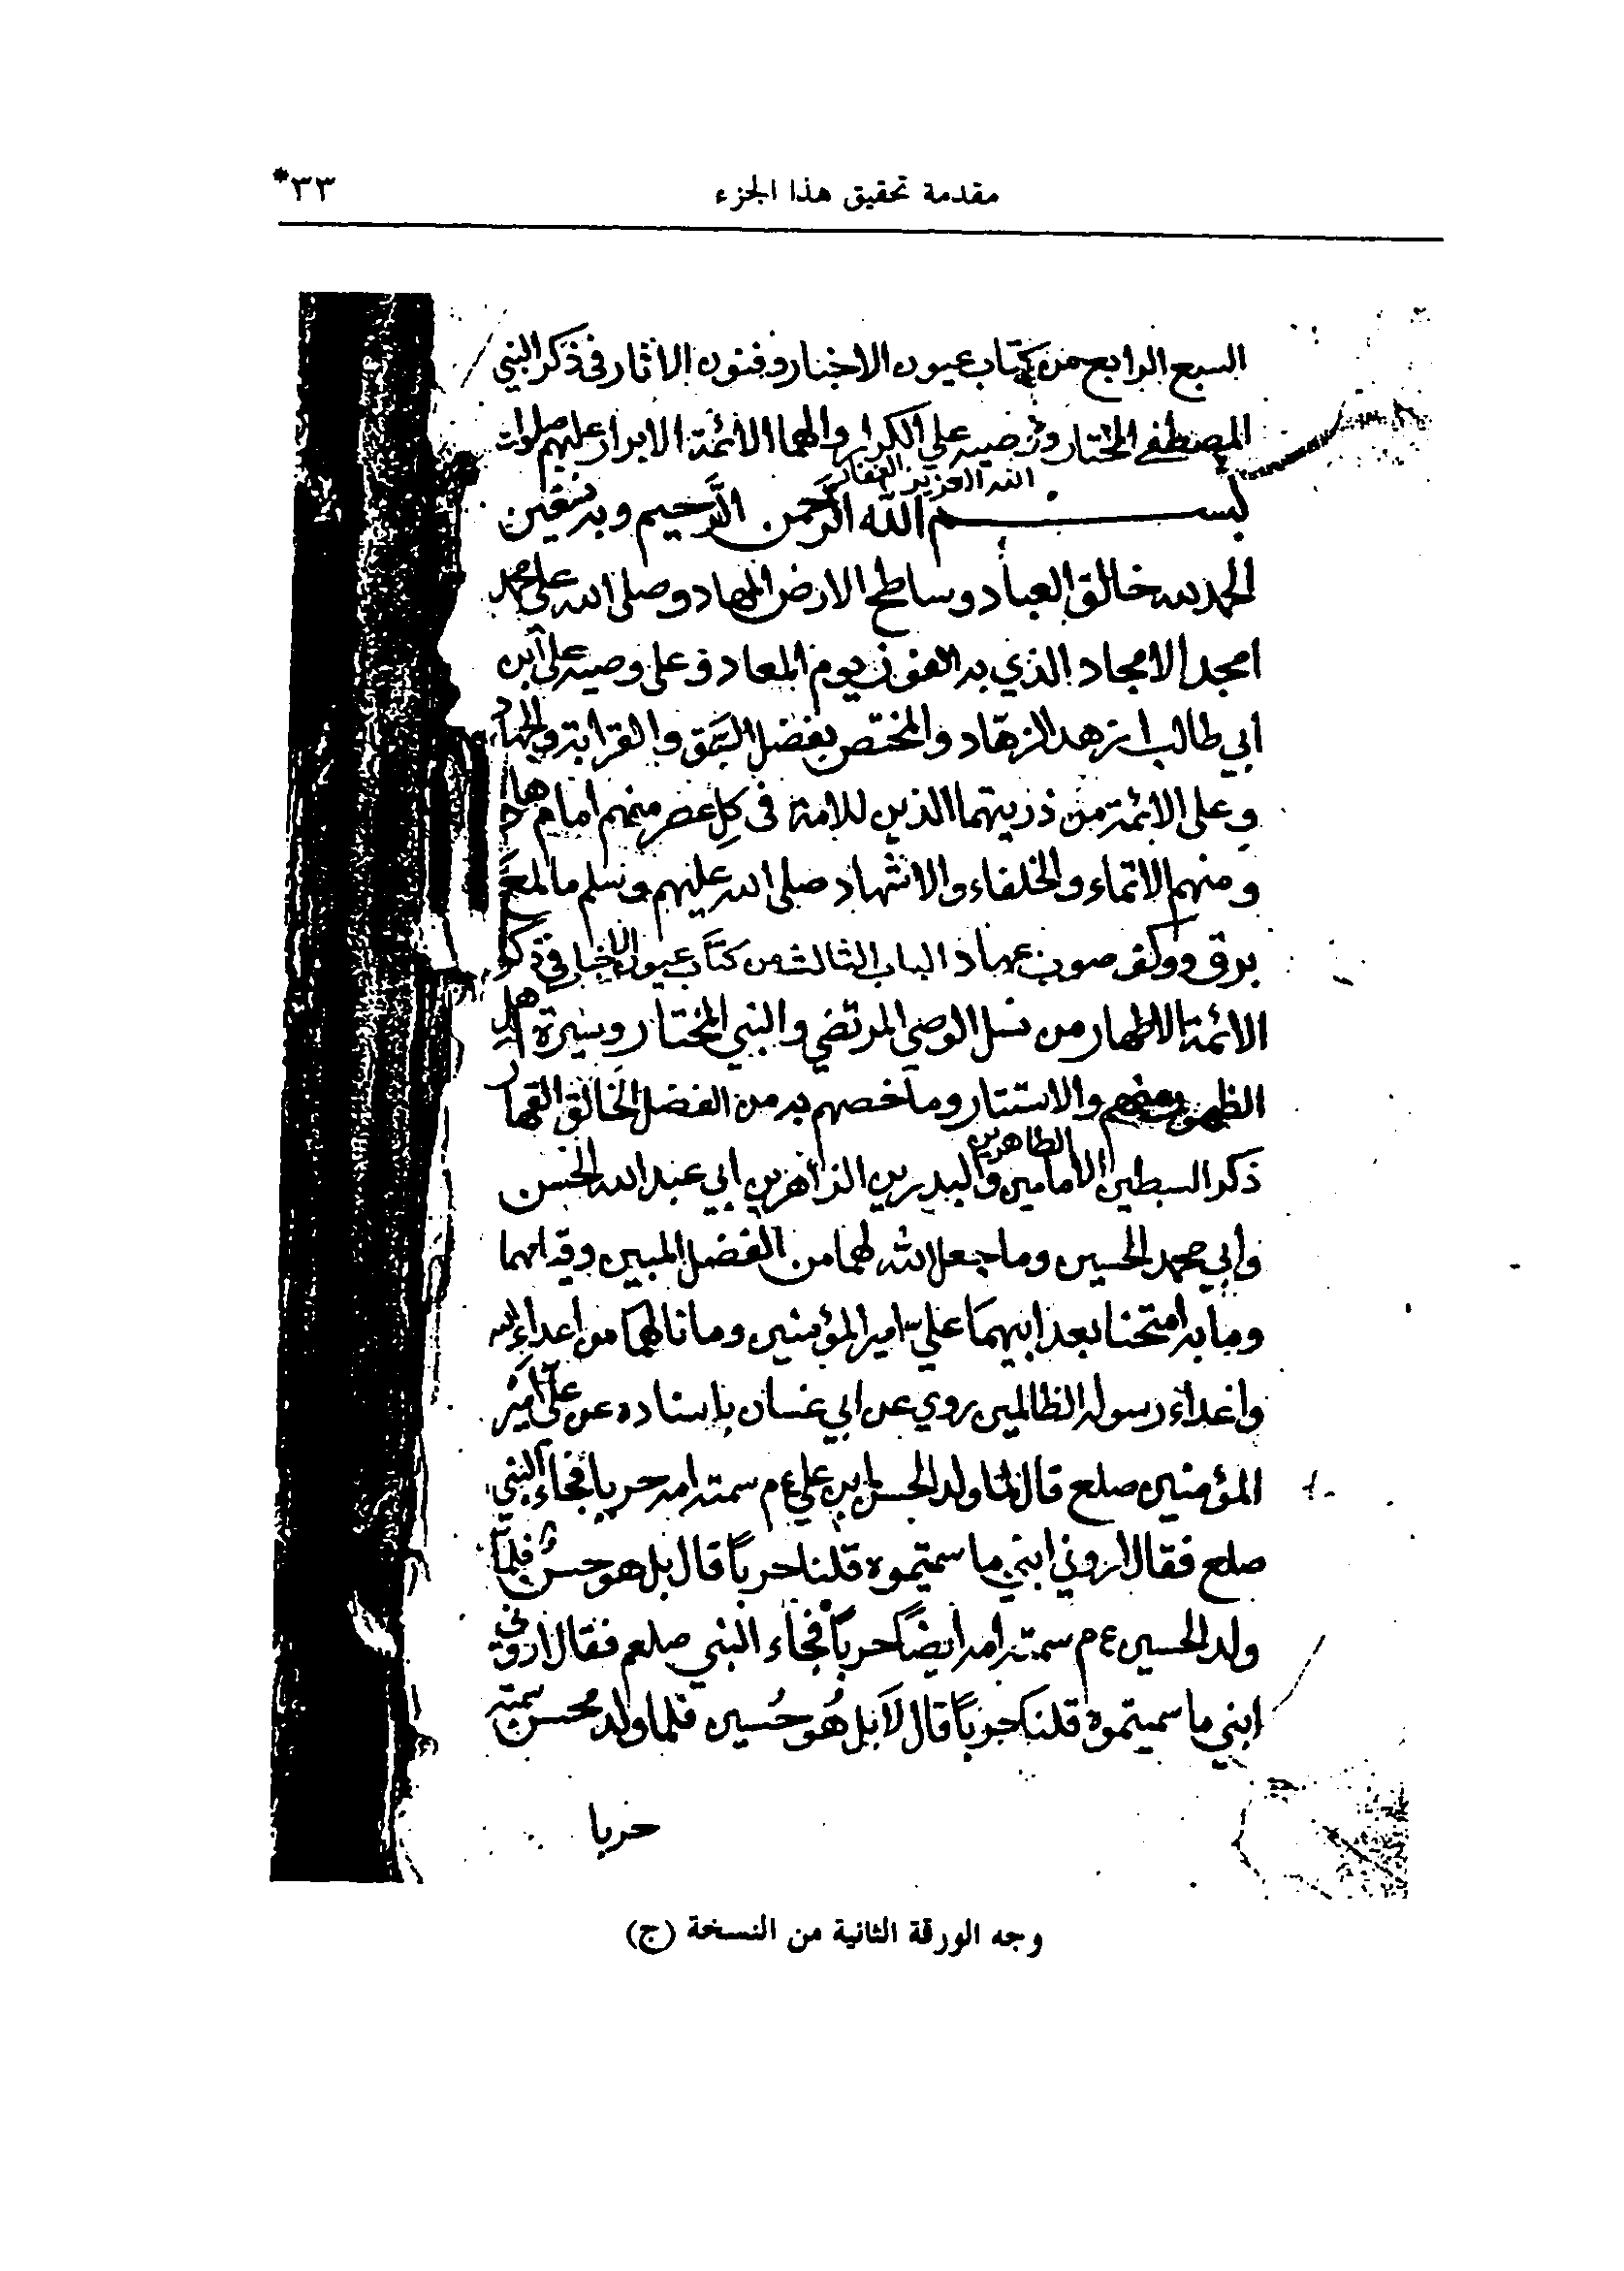 مقدمة تحقيق هذا الجزء
٣٣*
السبع الرابع من كتاب عيون الاخبار وفنون الاثار في ذكر النبي
المصطفى المختار ووصيه علي الكرار والهما الائمة الابرار عليهم صلوات
الله العزيز الغفار
بسم الله الرحمن الرحيم وبه نستعين
الحمد لله خالق العباد وساطح الارض المهاد وصلى الله على محمد
امجد الامجاد الذي به الفوز في يوم المعاد وعلى وصيه علي ابن
ابي طالب ازهد الزهّاد والمختص بفضل السبق والقرابة والجهاد
وعلى الائمة من ذريتهما الذين للامة في كل عصر منهم امام هاد
ومنهم الاتماء والخلفاء والاشهاد صلى الله عليهم وسلم ما لمع
برق ووكف صوب عهاد الباب الثالث من كتاب عيون الاخبار في ذكر
الائمة الاطهار من نسل الوصي المرتضى والنبي المختار وسيرة اهل
الظهور منهم والاستتار وما خصهم به من الفضل الخالق القهار
ذكر السبطين الامامين الطاهرين والبدرين الزاهرين ابي عبد الله الحسن
وابي محمد الحسين وما جعل الله لهما من الفضل المبين
وما به امتحنا بعد ابيهما علي امير المؤمنين وما نالهما من اعداء الله
واعداء رسوله الظالمين روي عن ابي غسان بإسناده عن علي امير
المؤمنين صلع قال لما ولد الحسن ابن علي ع م سمته امه حربا فجاء النبي
صلع فقال اروني ابني ما سميتموه قلنا حرباً قال بل هو حسن فلما
ولد الحسين ع م سمته امه ايضاً حرباً فجاء النبي صلعم فقال اروني
ابني ما سميتموه قلنا حرباً قال لا بل هُو حُسين فلما ولد محسن سمته
حربا
وجه الورقة الثانية من النسخة (ج)